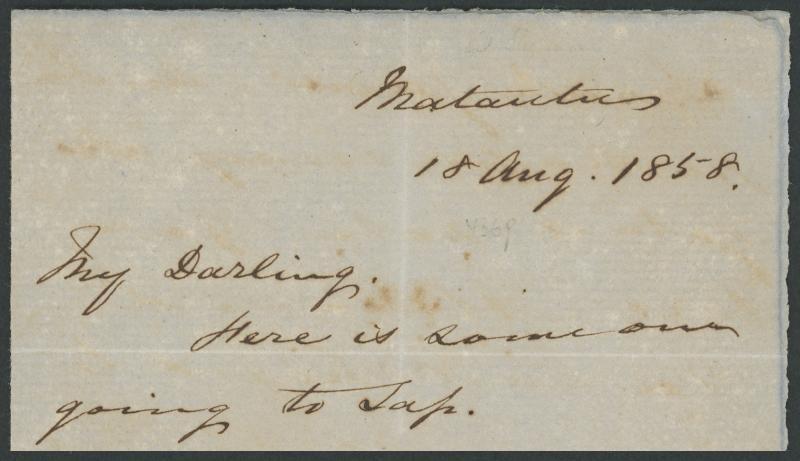 Matautu
18 Aug. 1858.
My Darling.
Here is some one
going to Sap.